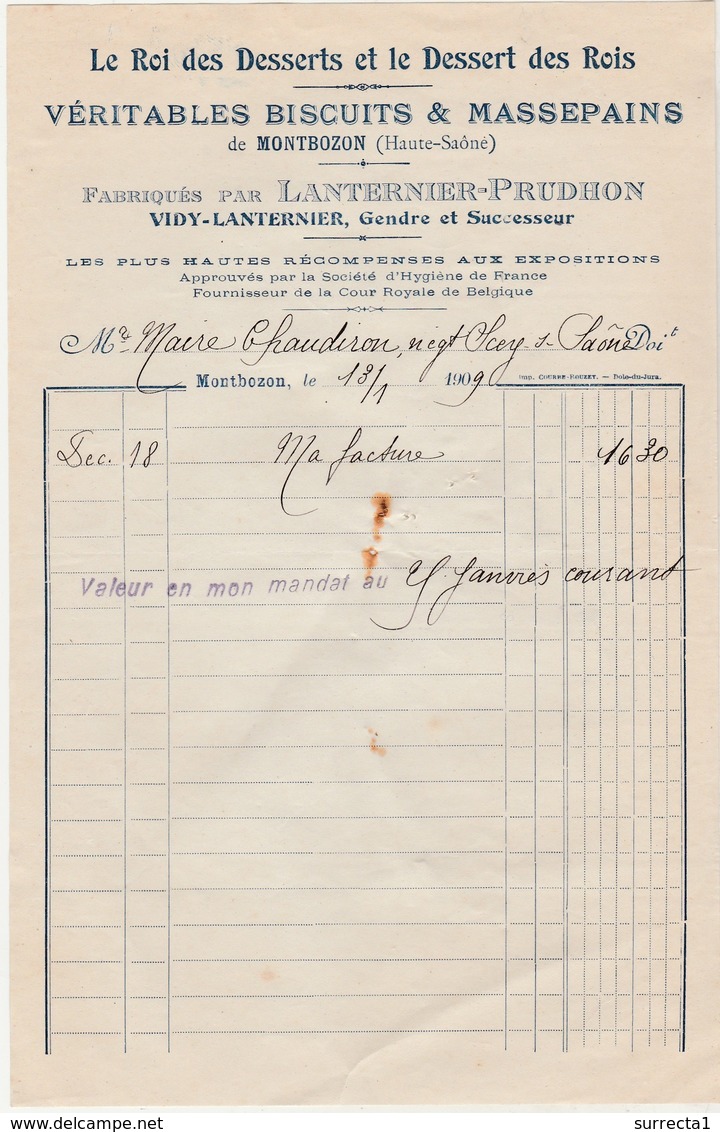 Le Roi des Desserts et le Dessert des Rois
VÉRITABLES BISCUITS & MASSEPAINS
de MONTBOZON (Haute-Saône)
FABRIQUÉS PAR LANTERNIER-PRUDHON
VIDY-LANTERNIER, Gendre et Successeur
LES PLUS HAUTES RÉCOMPENSES AUX EXPOSITIONS
Approuvés par la Société d'Hygiène de France
Fournisseur de la Cour Royale de Belgique
Mr Maire Chaudiron, négt Scey s Saône Doit
Montbozon, le 13/1 1909
Imp. COURBE-ROUZET. — Dole-du-Jura.
Dec. 18 Ma facture 16 30
Valeur en mon mandat au courant
delcampe.net
surrecta1